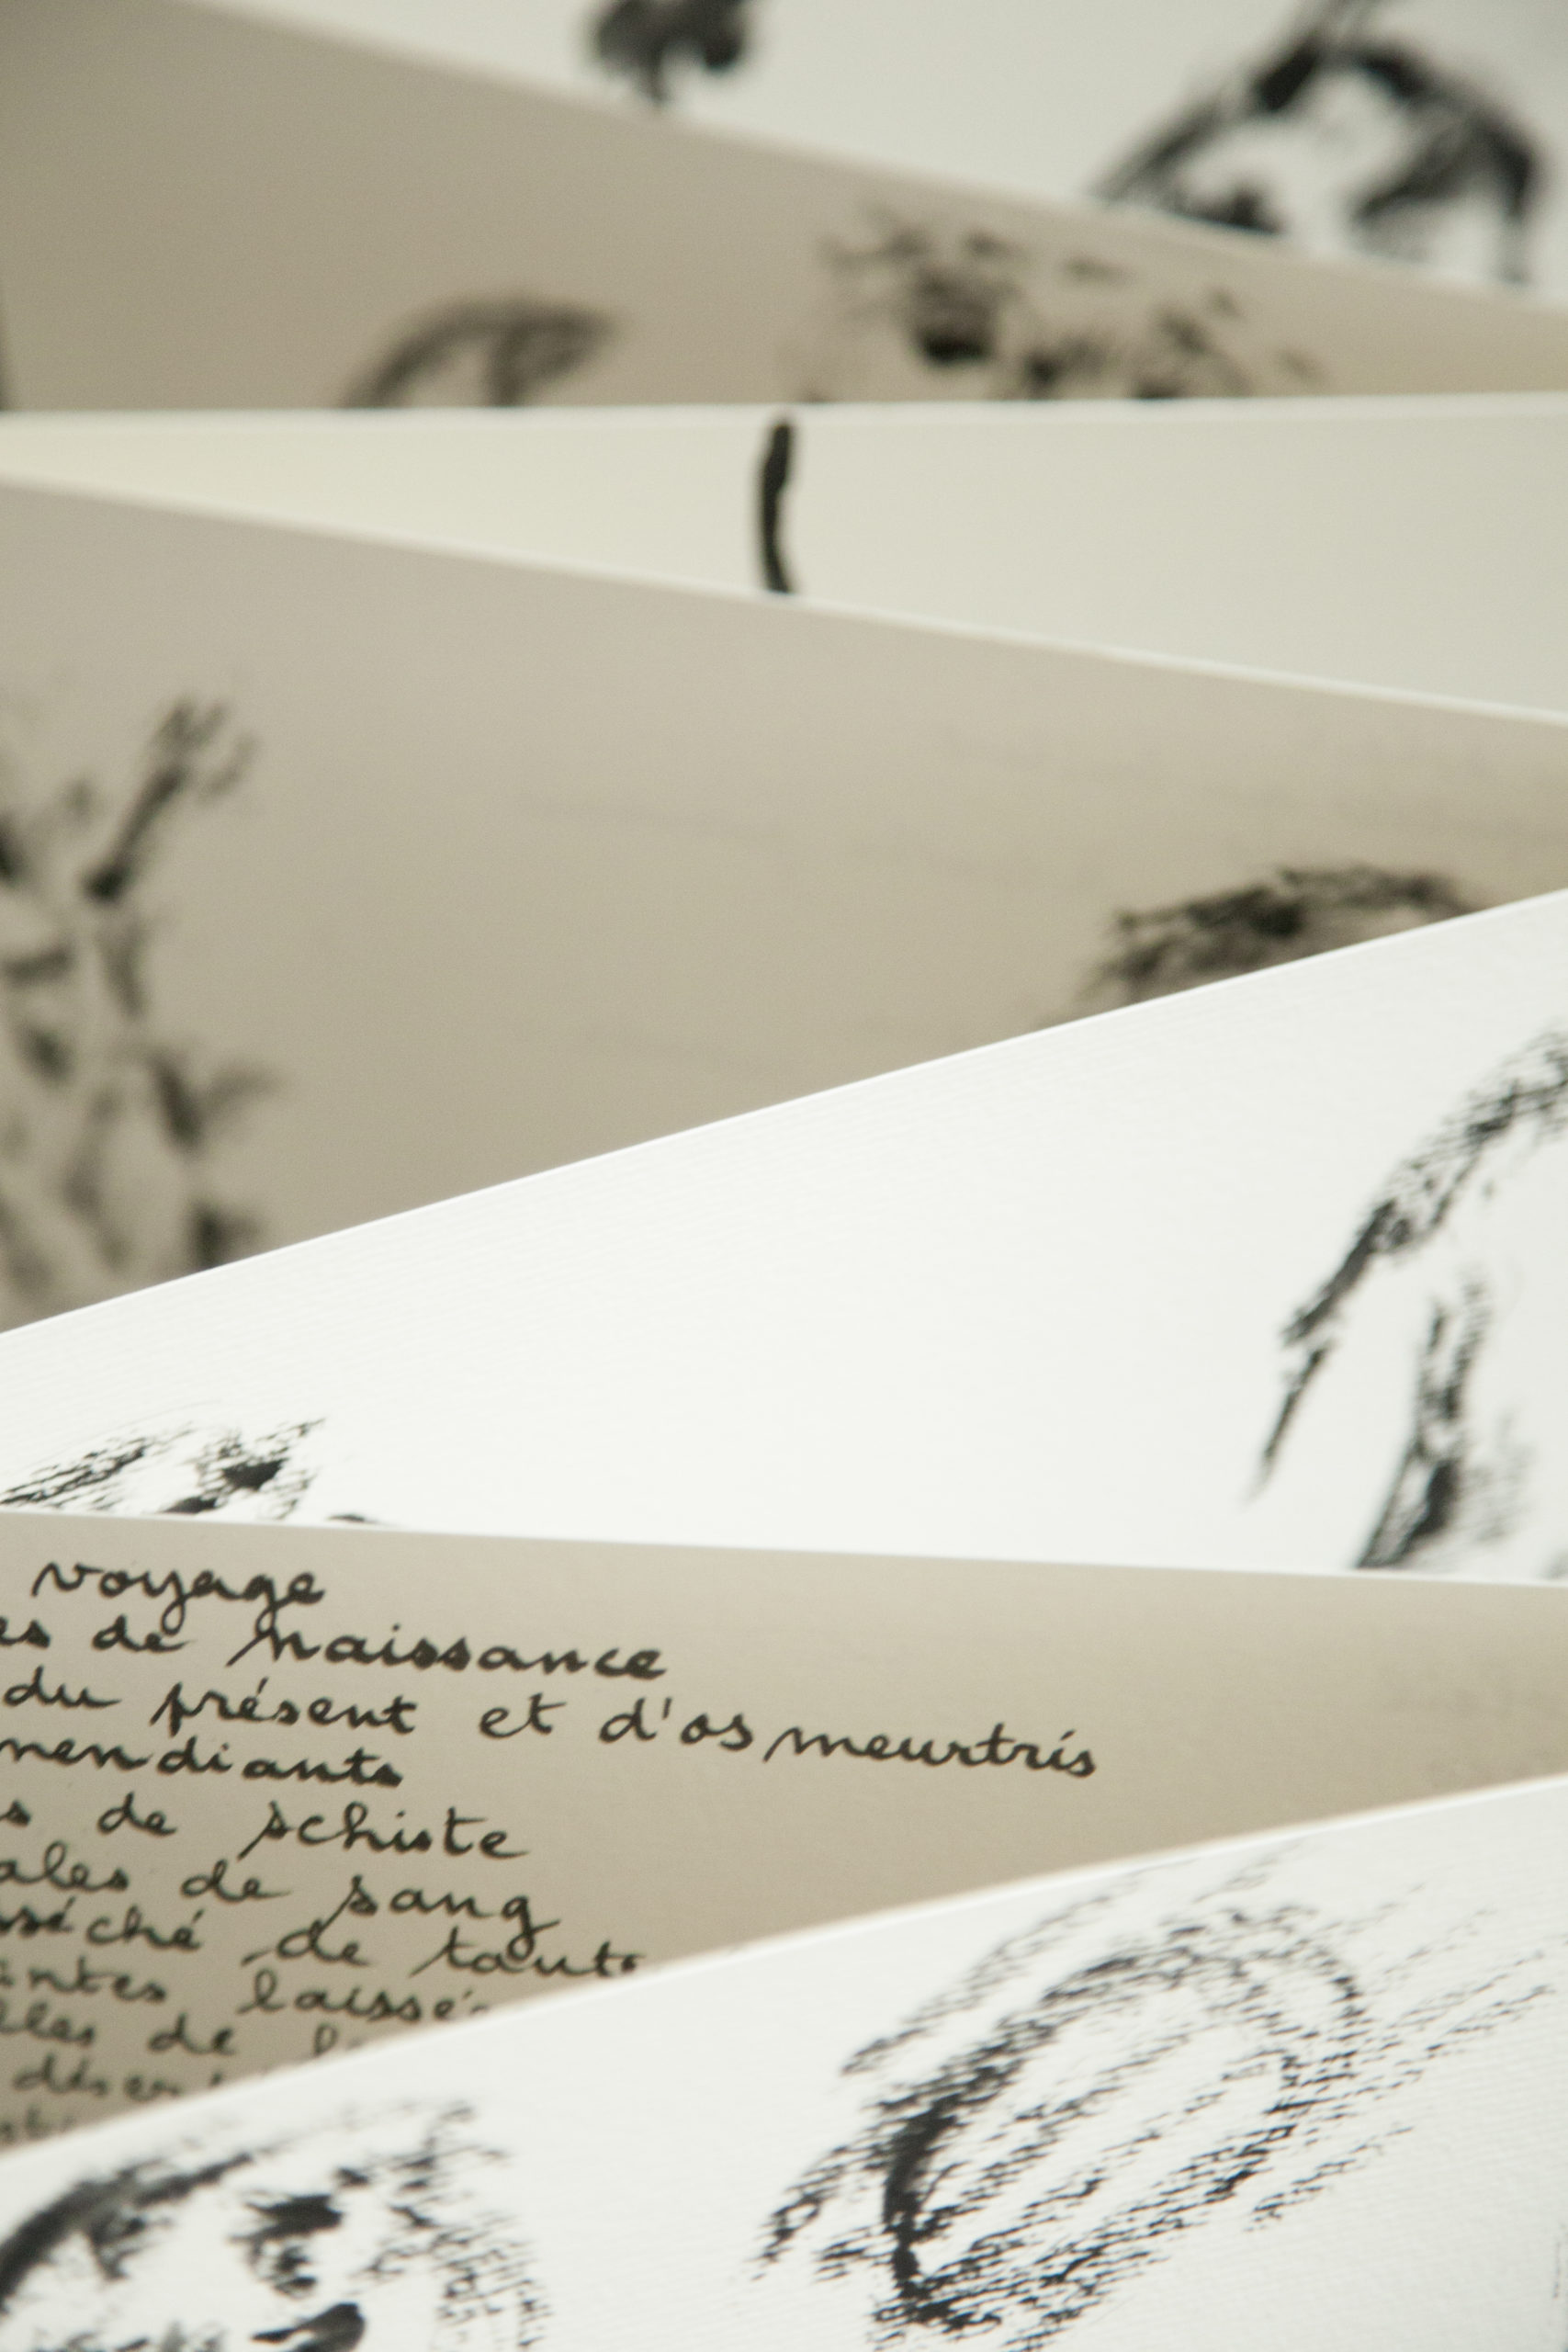 voyage
es de naissance
du présent et d'os meurtris
mendiants
s de schiste
ales de sang
séché de tant
intes laissé
lles de l
déser